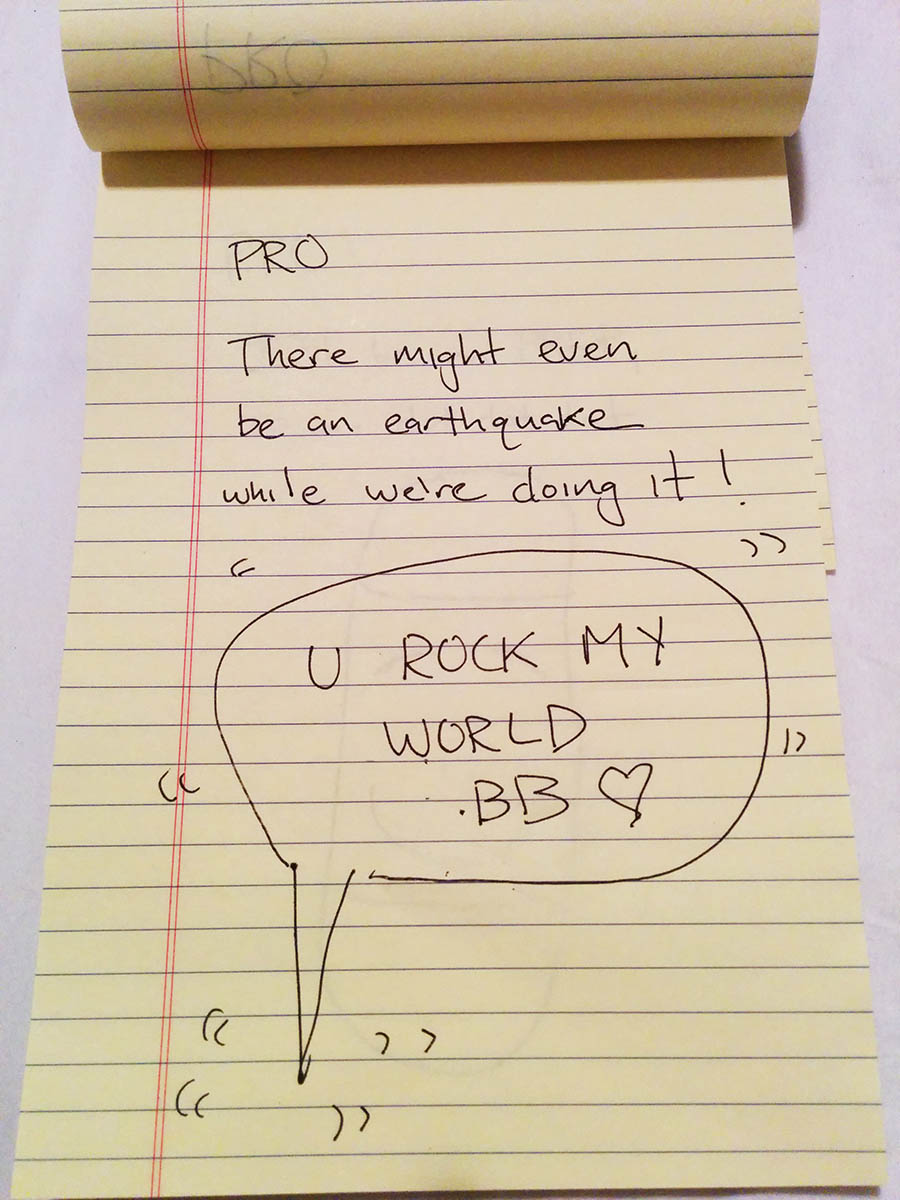 PRO
There might even
be an earthquake
while we're doing it!
U ROCK MY
WORLD
.BB ♡